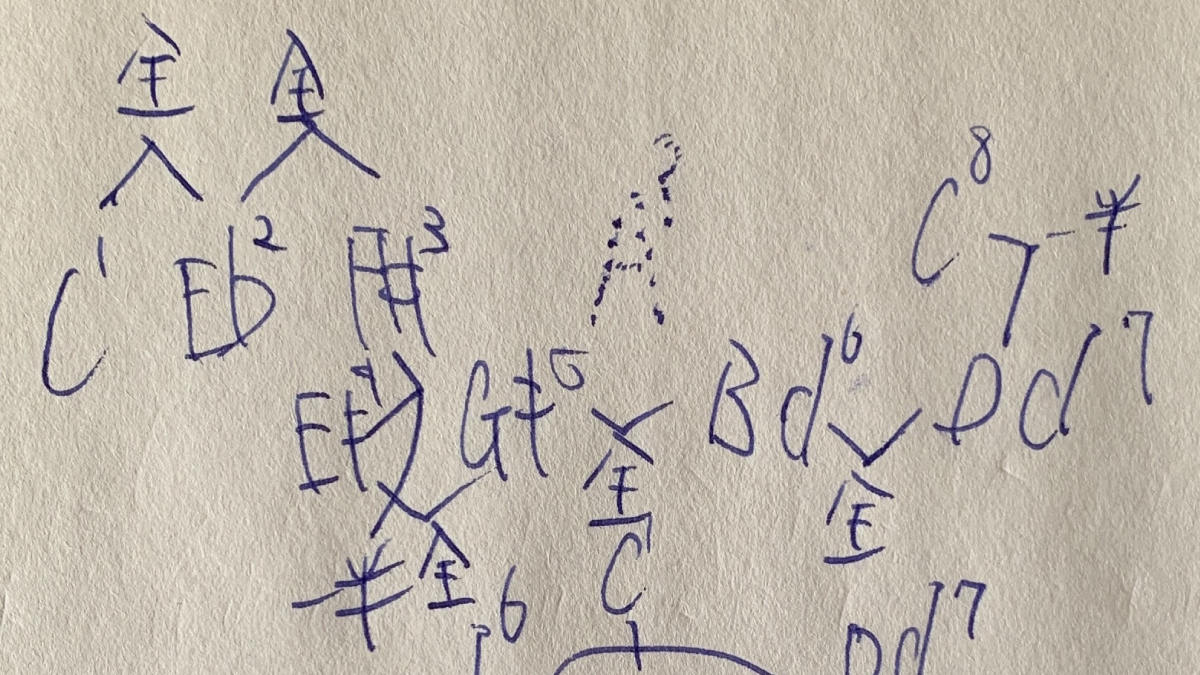 全 全
C1 Eb2 F#3
A?
C8 半
E‡4 G‡5 Bd6 Dd7
全 全
半 全
C1
6 Dd7